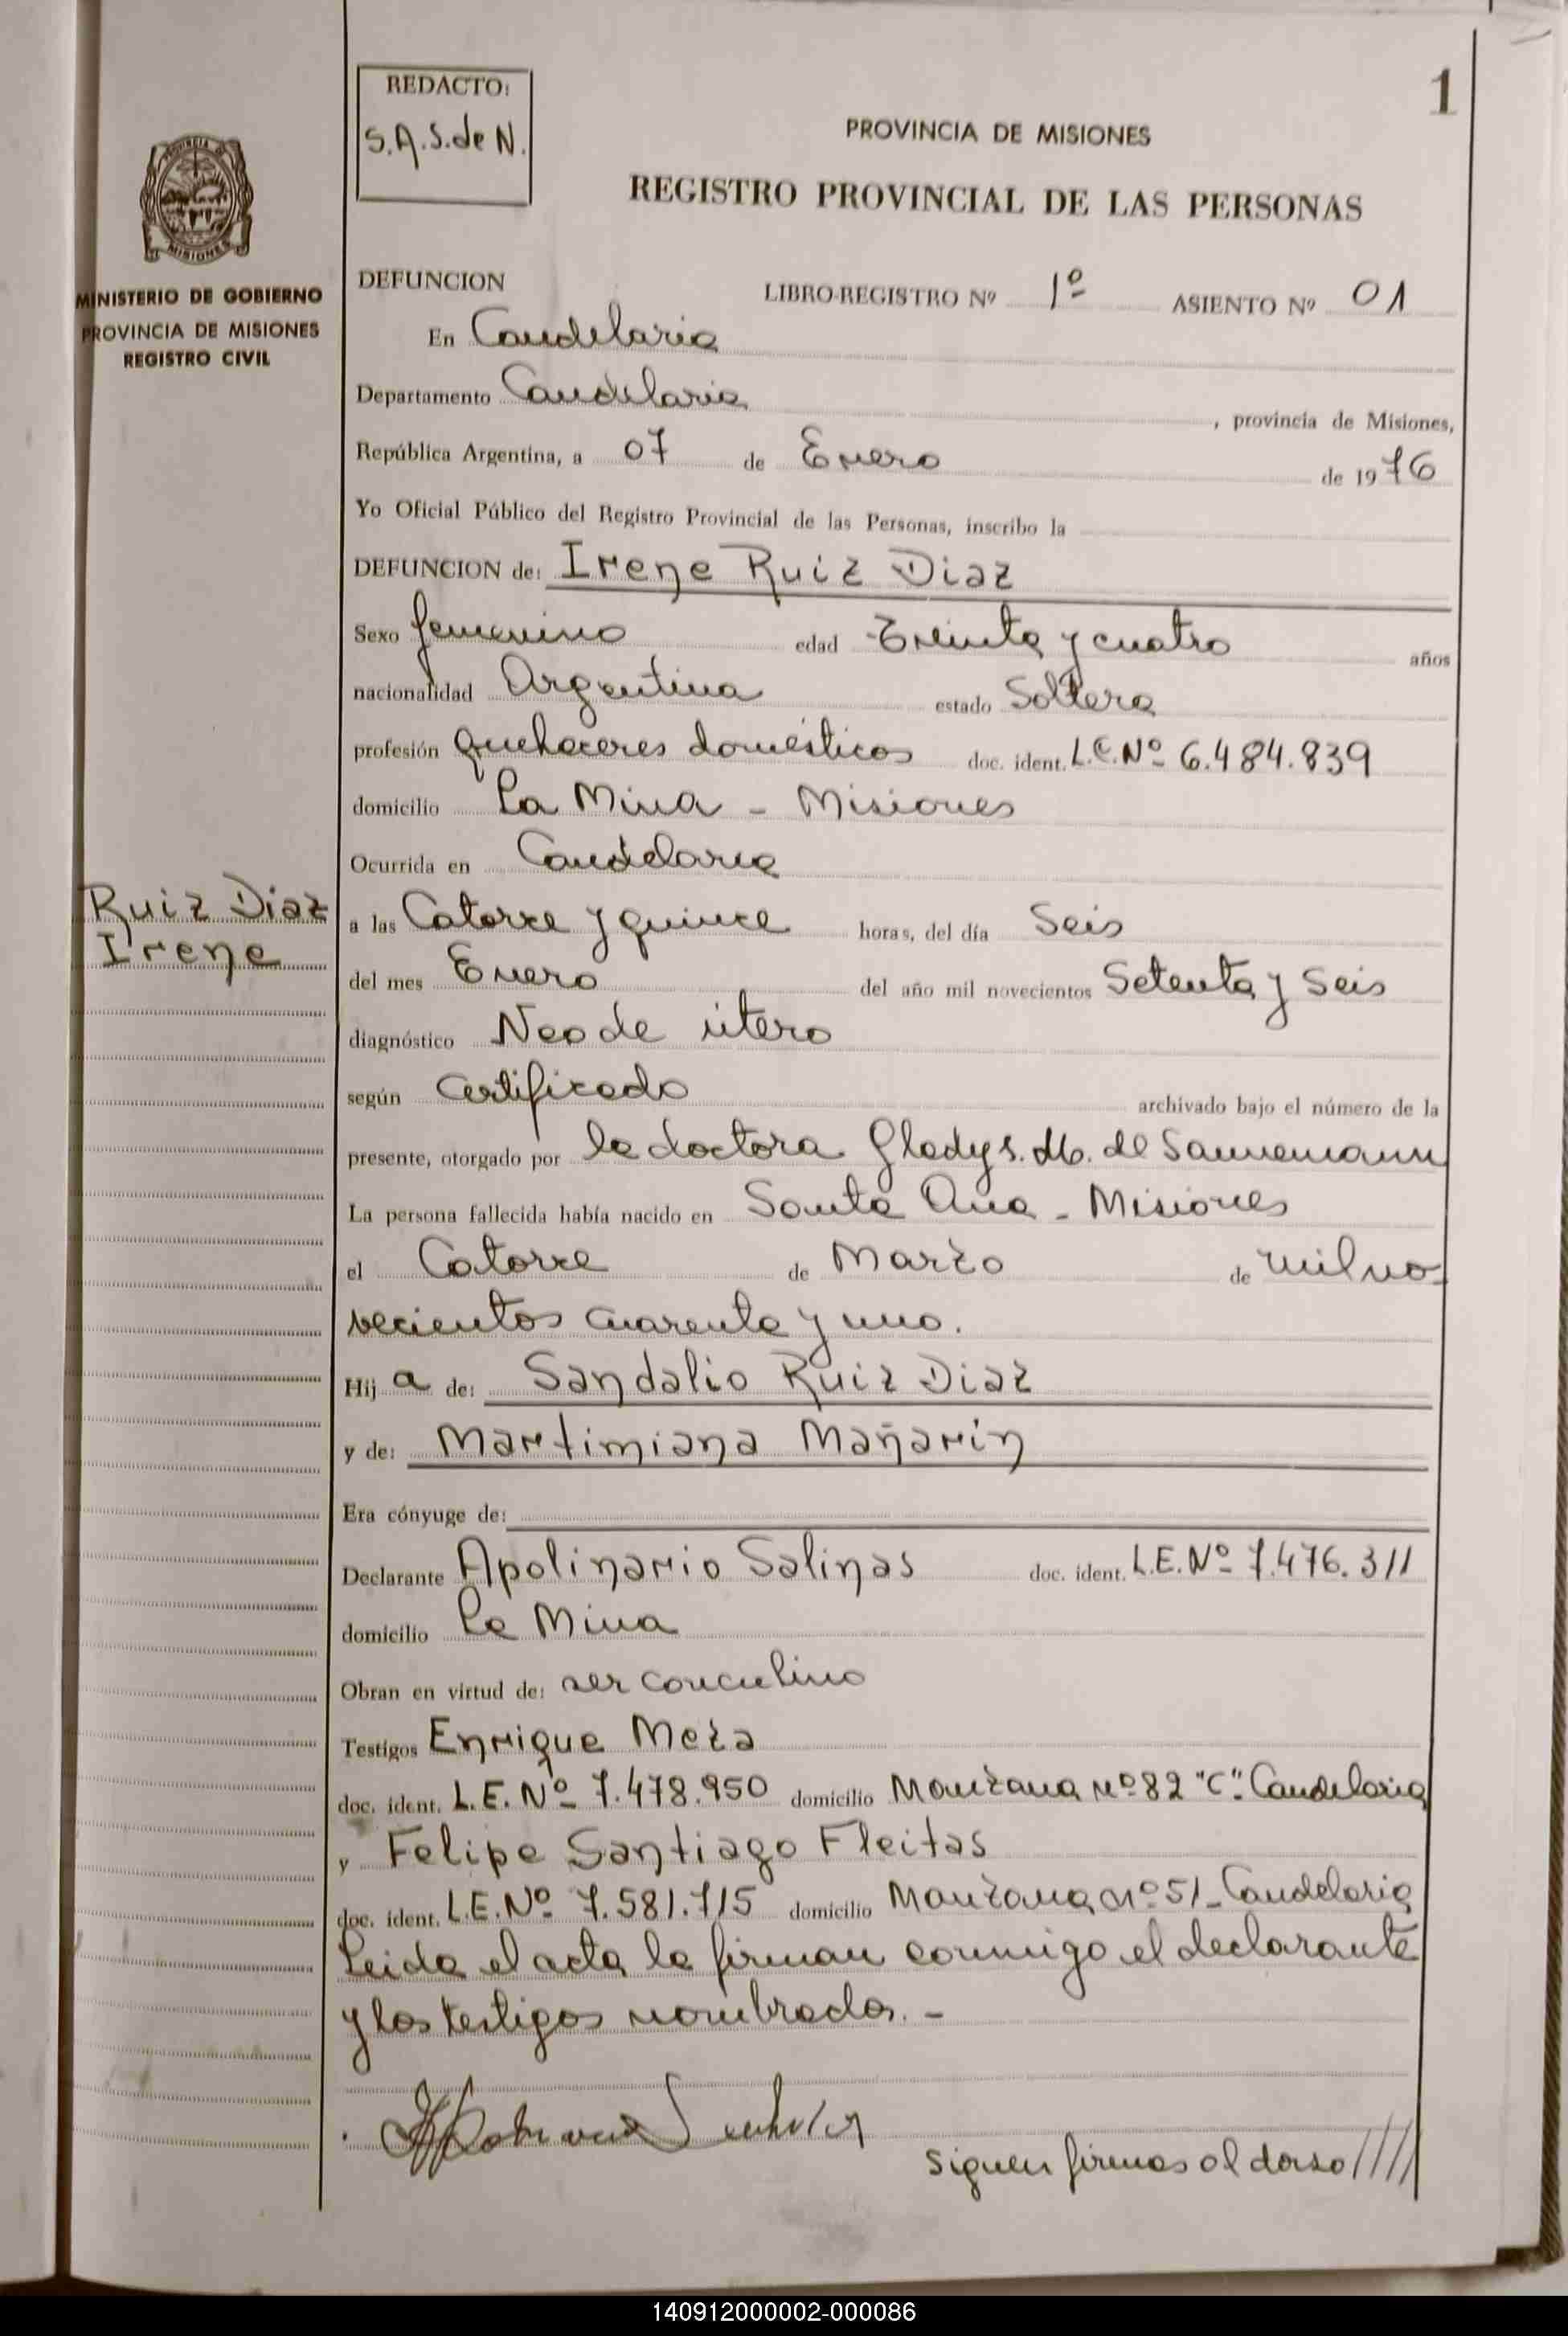 1
REDACTO:
S.A.S. de N.
PROVINCIA DE MISIONES
REGISTRO PROVINCIAL DE LAS PERSONAS
PROVINCIA DE
MISIONES
MINISTERIO DE GOBIERNO
PROVINCIA DE MISIONES
REGISTRO CIVIL
DEFUNCION LIBRO-REGISTRO Nº 1º ASIENTO Nº 01
En Candelaria
Departamento Candelaria, provincia de Misiones,
República Argentina, a 07 de Enero de 1976
Yo Oficial Público del Registro Provincial de las Personas, inscribo la
DEFUNCION de: Irene Ruiz Diaz
Sexo femenino edad Treinta y cuatro años
nacionalidad Argentina estado Soltera
profesión quehaceres domésticos doc. ident. L.C. Nº 6.484.839
domicilio La Mina - Misiones
Ocurrida en Candelaria
Ruiz Diaz
Irene
a las Catorce y quince horas, del día Seis
del mes Enero del año mil novecientos Setenta y Seis
diagnóstico Neo de útero
según Certificado archivado bajo el número de la
presente, otorgado por la doctora Gladys. M. de Sannemann
La persona fallecida había nacido en Santa Ana - Misiones
el Catorce de Marzo de mil no-
vecientos cuarenta y uno.
Hija de: Sandalio Ruiz Diaz
y de: Martimiana Mañarin
Era cónyuge de:
Declarante Apolinario Salinas doc. ident. L.E. Nº 7.476.311
domicilio La Mina
Obran en virtud de: ser concubino
Testigos Enrique Meza
doc. ident. L.E. Nº 7.478.950 domicilio Manzana Nº 82 "C". Candelaria
y Felipe Santiago Fleitas
doc. ident. L.E. Nº 7.581.715 domicilio Manzana Nº 51 - Candelaria
Leida el acta la firman conmigo el declarante
y los testigos nombrados. -
siguen firmas al dorso ////
140912000002-000086